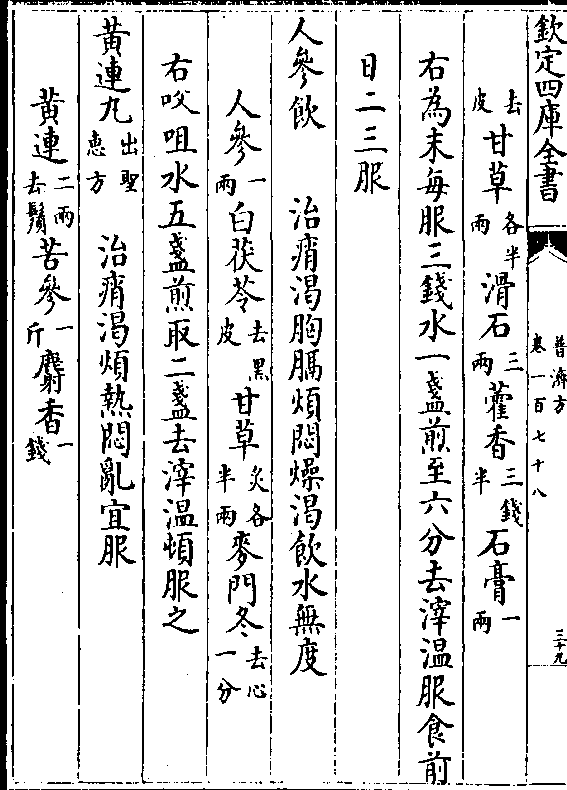 欽定四庫全書
普濟方
卷一百七十八
三十九
去皮甘草各半兩滑石三兩藿香三錢半石膏一兩
右為末每服三錢水一盞煎至六分去滓温服食前
日二三服
人參飲　治痟渴胸膈煩悶燥渴飲水無度
人參一兩白茯苓去黑皮甘草炙各半兩麥門冬去心一分
右㕮咀水五盞煎取二盞去滓温頓服之
黄連丸出聖惠方　治痟渴煩熱悶亂宜服
黄連二兩去鬚苦參一斤麝香一錢